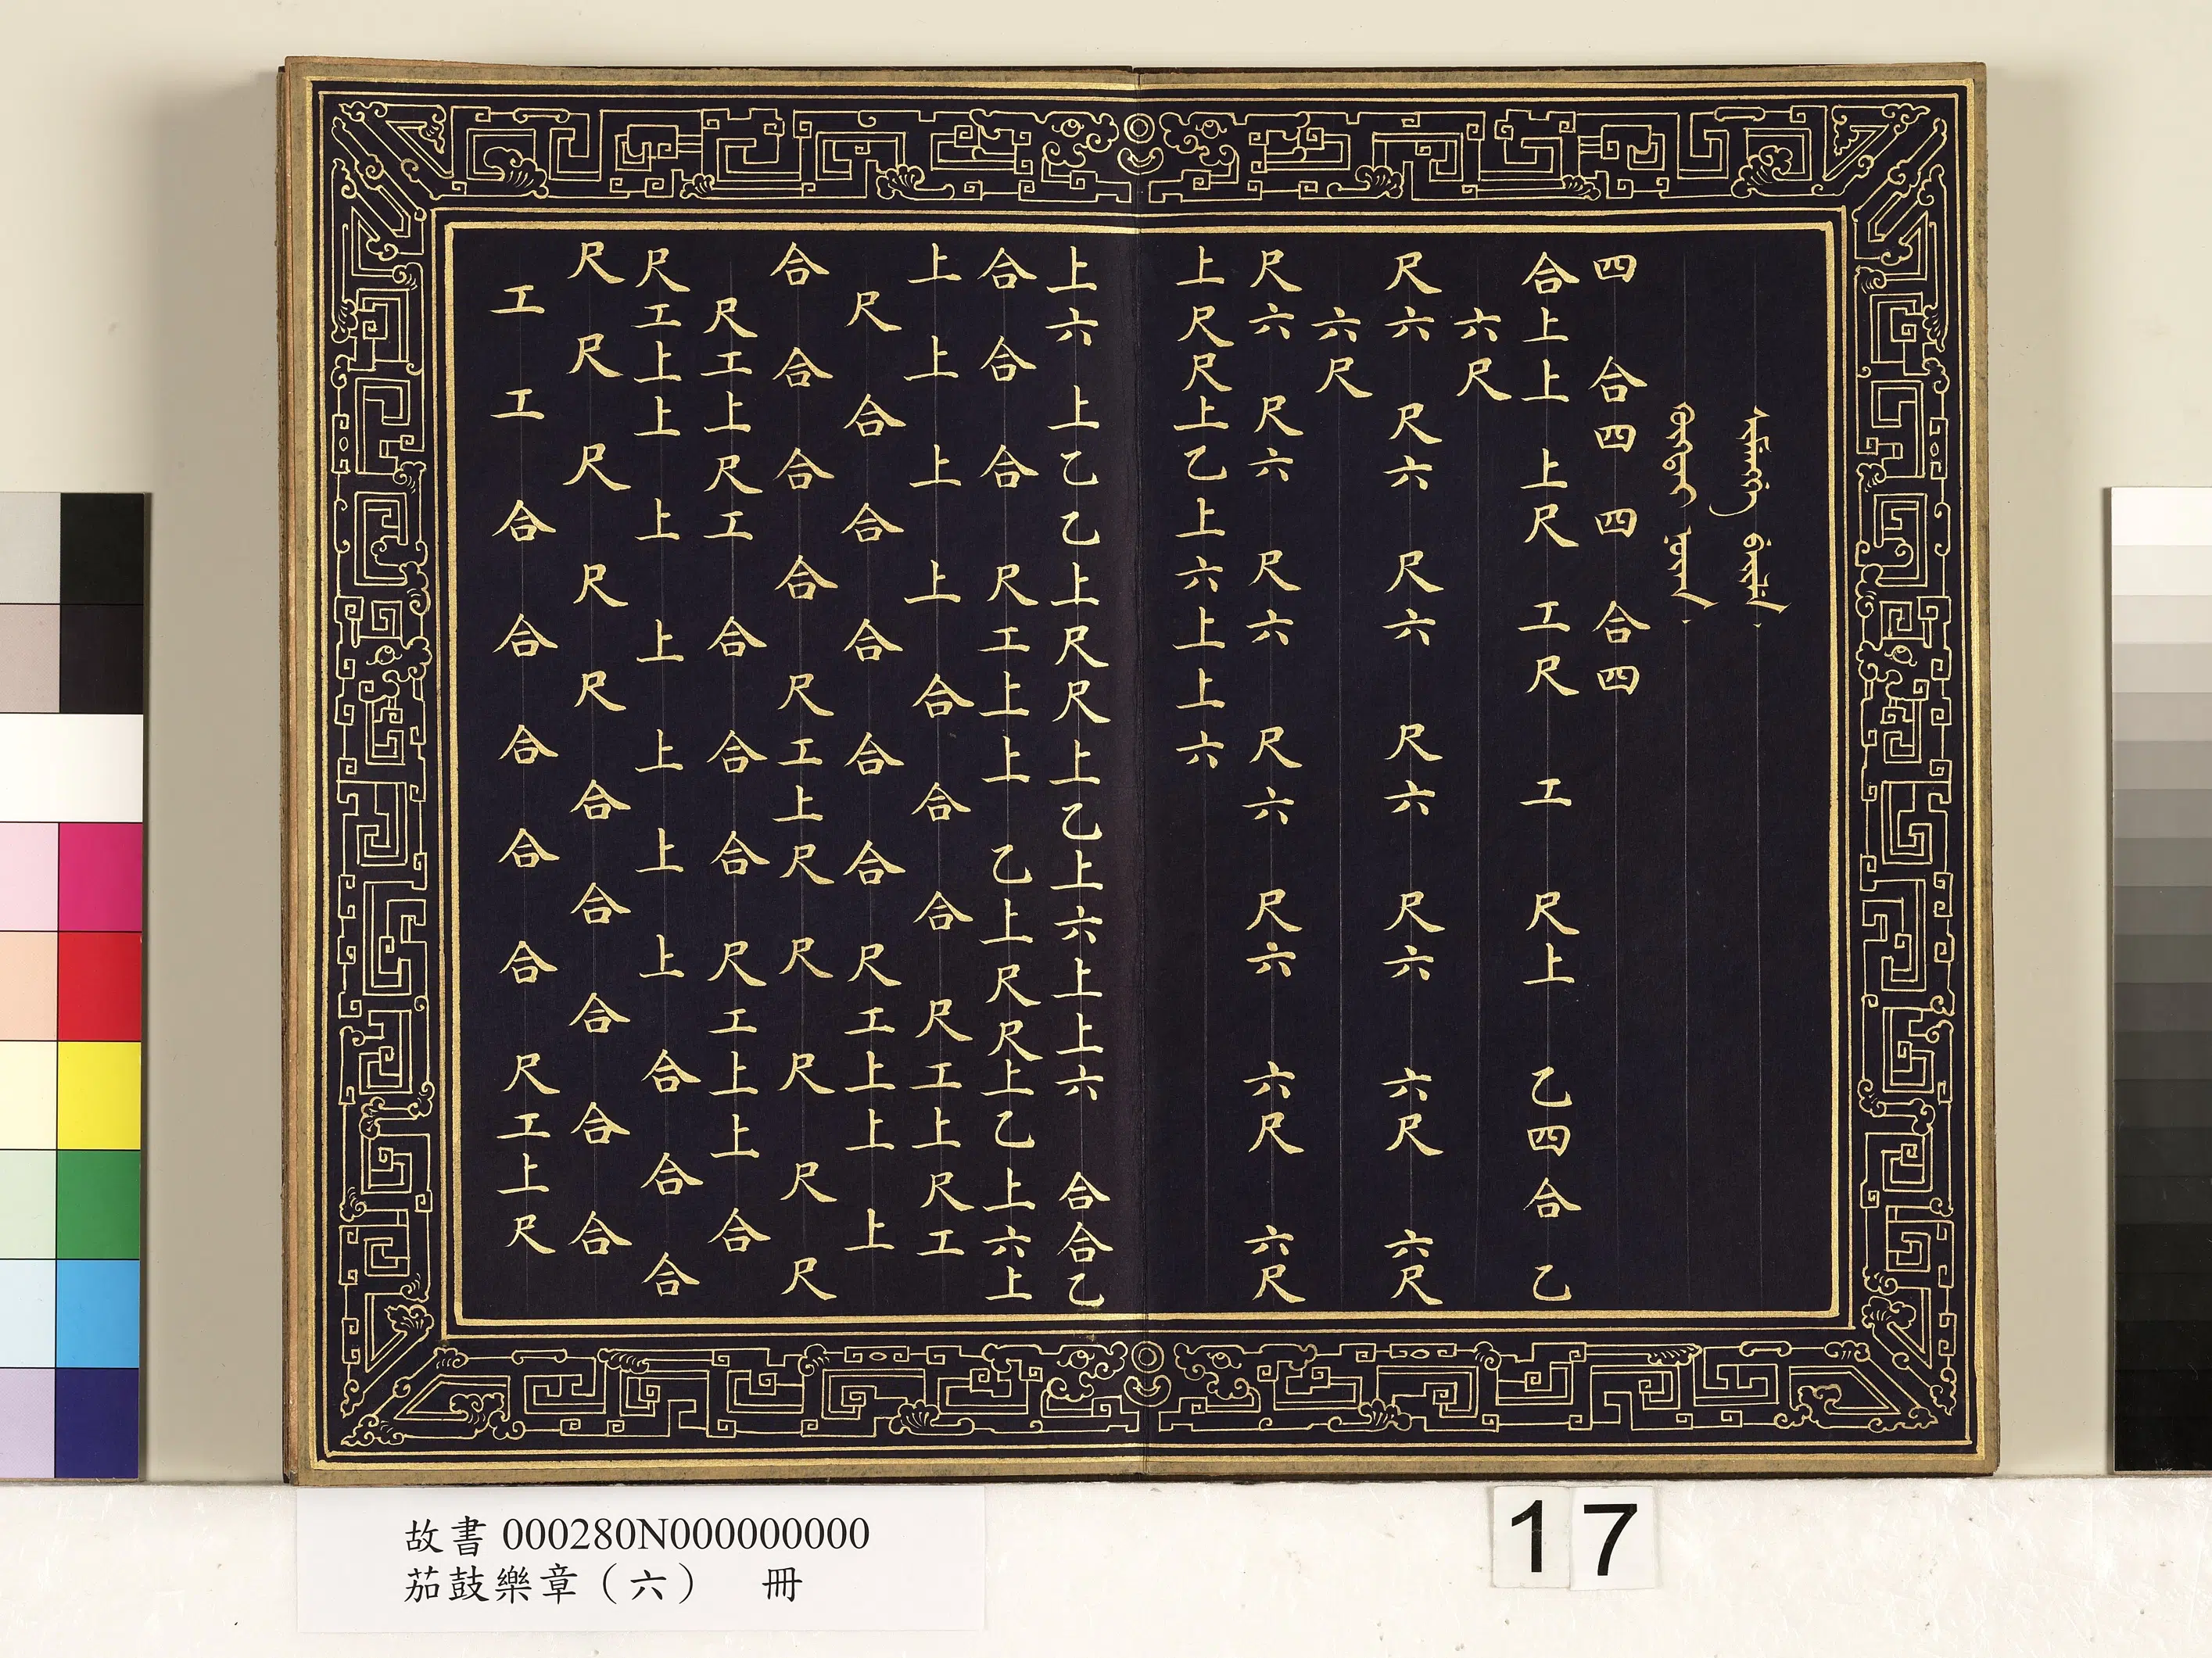 四 合四 四 合四
合上上 上尺 工尺 工 尺上 乙四合 乙
六尺
尺六 尺六 尺六 尺六 尺六 六尺 六尺
六尺
尺六 尺六 尺六 尺六 尺六 六尺 六尺
上尺尺上乙上六上上六
上六 上乙乙上尺尺上乙上六上上六 合合乙
合 合 合 尺工上上 乙上尺尺上乙上六上
上 上 上 上 合 合 合 尺工上尺工
尺 合 合 合 合 合 尺工上上 上
合 合 合 合 尺工上尺 尺 尺 尺 尺
尺工上尺工 合 合 合 尺工上上 合
尺工上上 上 上 上 上 上 合 合 合
尺 尺 尺 尺 尺 合 合 合 合 合
工 工 合 合 合 合 合 尺工上尺
故書 000280N000000000
茄鼓樂章（六） 冊
17